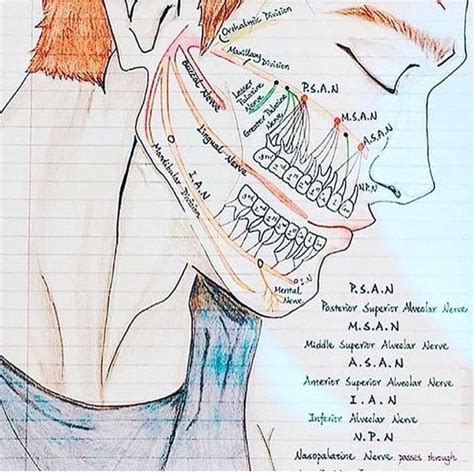 Orthalmic Division
Maxillary Division
Lesser
Palatine
Nerve
Greater Palatine
Nerve
P.S.A.N
M.S.A.N
A.S.A.N
N.P.N
Buccal Nerve
Lingual Nerve
I.A.N
Mandibular Division
3rd
2nd
1st
3rd
2nd
1st
I.N
Mental
Nerve
P.S.A.N
Posterior Superior Alveolar Nerve
M.S.A.N
Middle Superior Alveolar Nerve
A.S.A.N
Anterior Superior Alveolar Nerve
I.A.N
Inferior Alveolar Nerve
N.P.N
Nasopalatine Nerve passes through